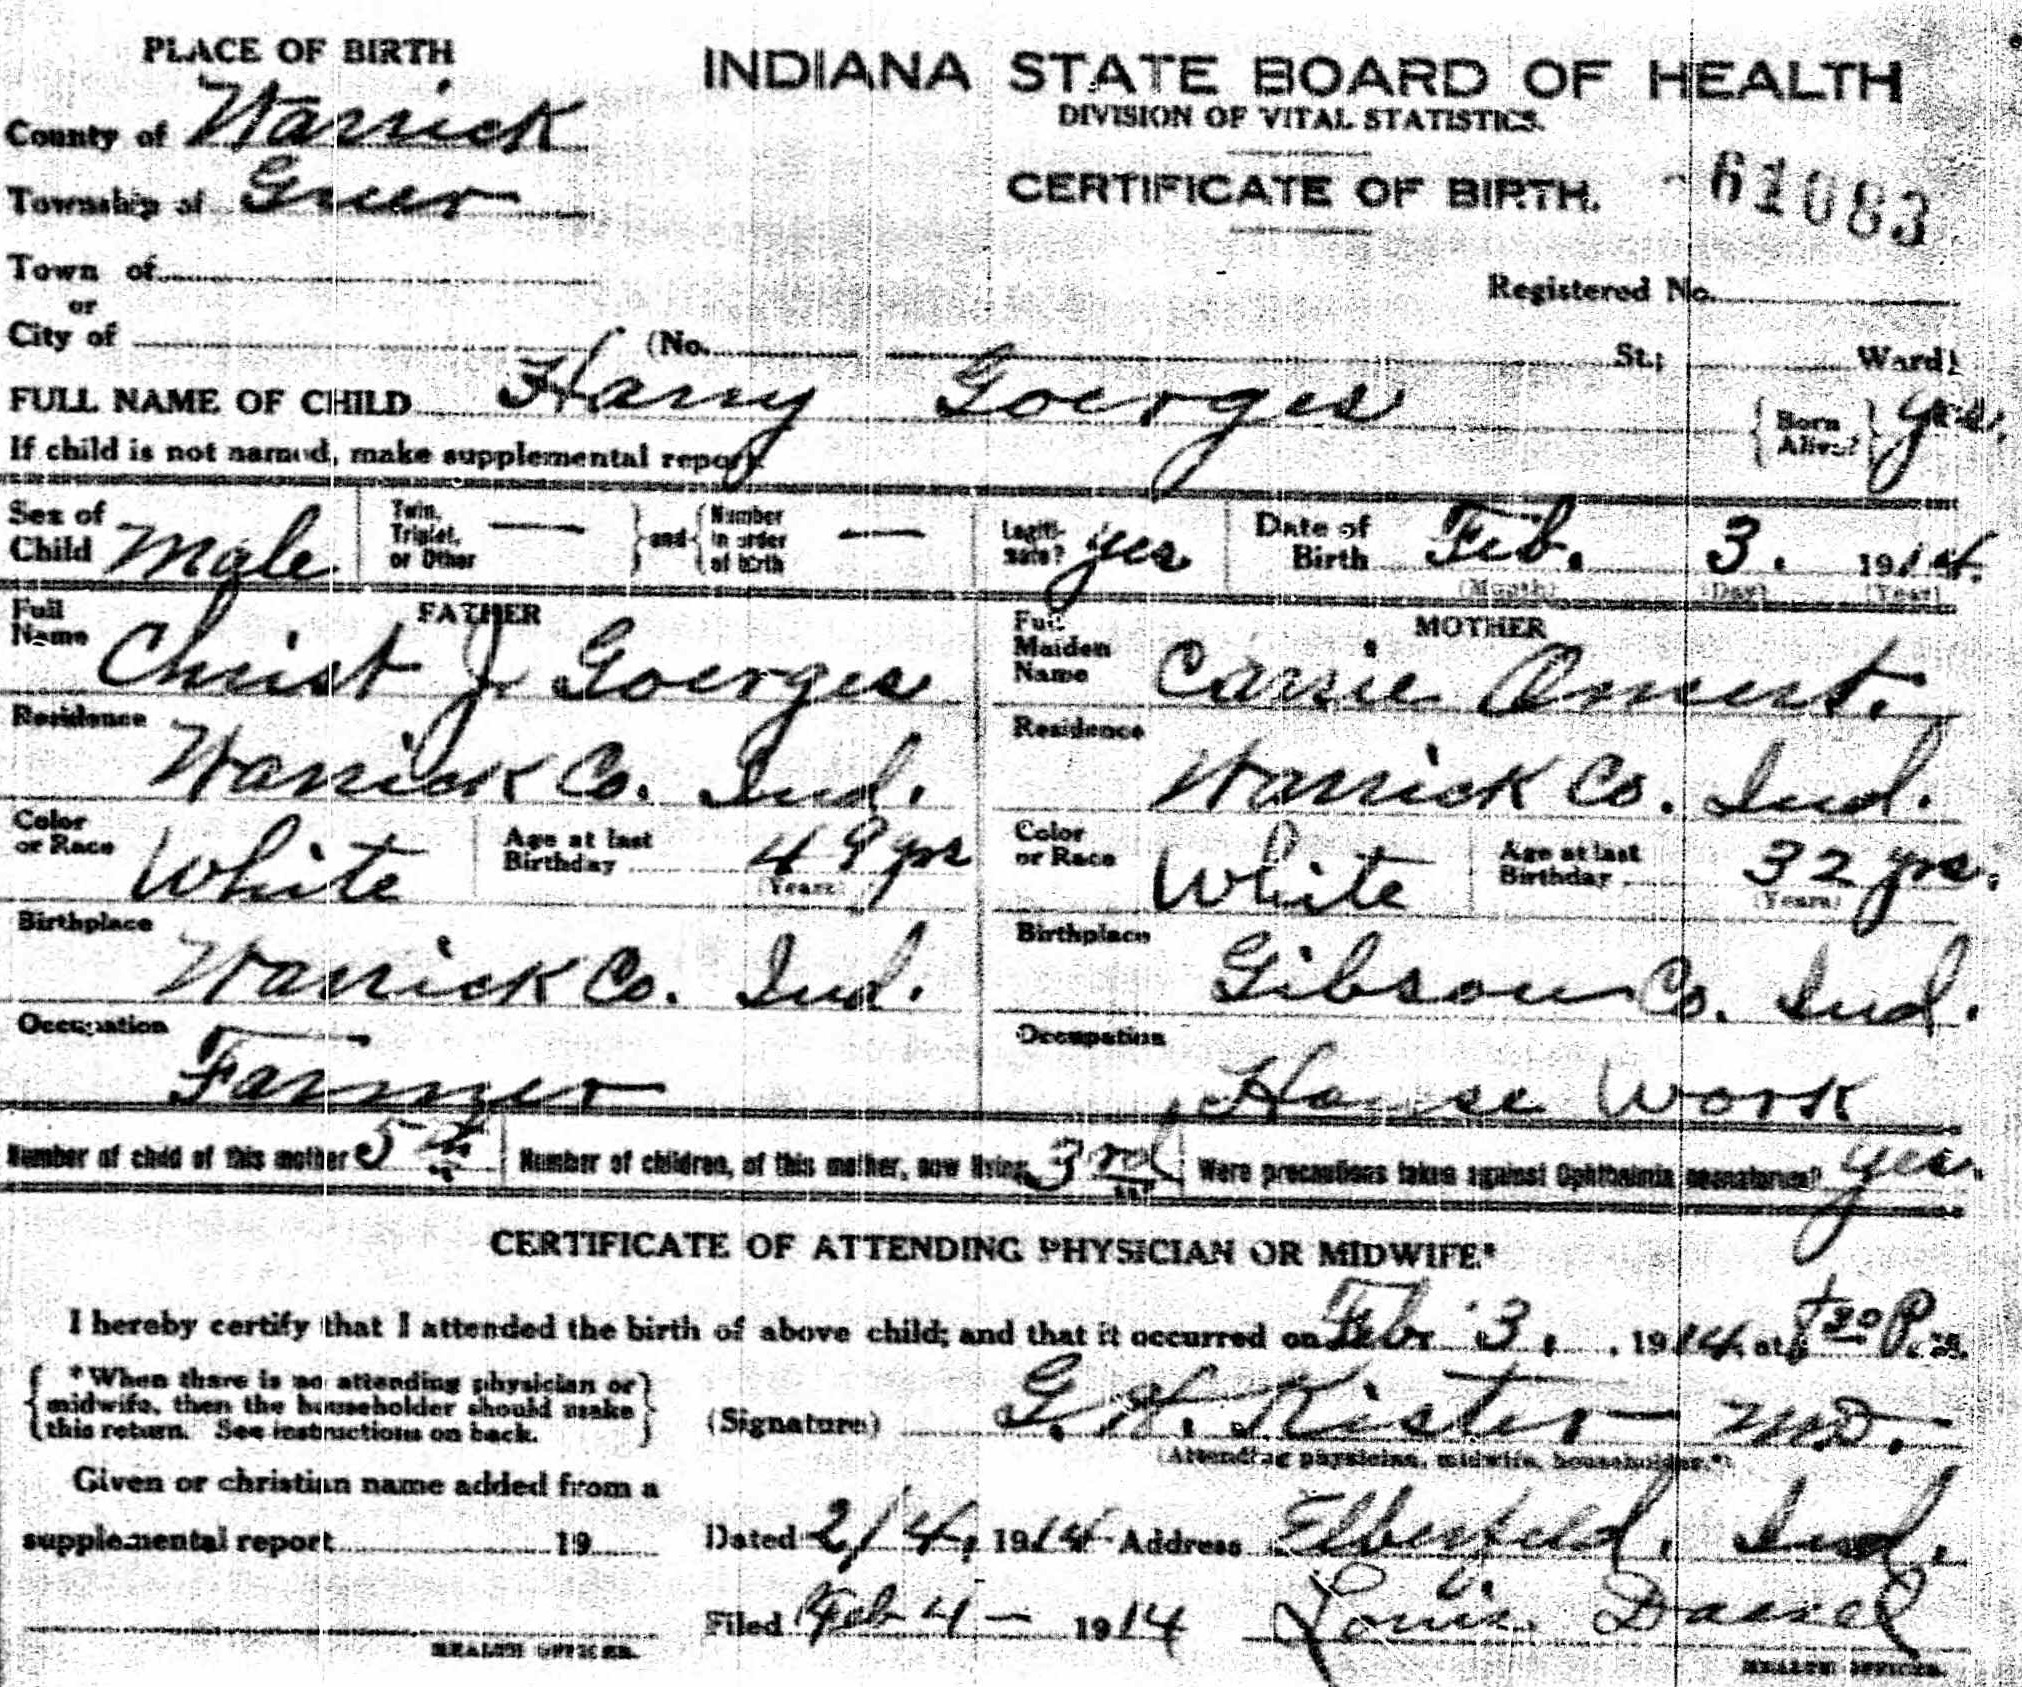 PLACE OF BIRTH
INDIANA STATE BOARD OF HEALTH
DIVISION OF VITAL STATISTICS.
County of Warrick
CERTIFICATE OF BIRTH.
61083
Township of Greer
Town of
Registered No.
or
City of (No. St.; Ward)
FULL NAME OF CHILD Harry Goerges { Born Alive? } yes.
If child is not named, make supplemental report.
Sex of Child Male Twin, Triplet, or Other — } and { Number in order of birth — Legiti-mate? yes Date of Birth Feb. 3. 1914.
(Month) (Day) (Year)
FATHER
MOTHER
Full Name Christ J Goerges
Full Maiden Name Carrie
Residence Warrick Co. Ind.
Residence Warrick Co. Ind.
Color or Race White Age at last Birthday 49 yrs
(Years)
Color or Race White Age at last Birthday 32 yrs.
(Years)
Birthplace Warrick Co. Ind.
Birthplace Gibson Co. Ind.
Occupation Farmer
Occupation House Work
Number of child of this mother 5th Number of children, of this mother, now living 3rd Were precautions taken against Ophthalmia neonatorum? yes.
CERTIFICATE OF ATTENDING PHYSICIAN OR MIDWIFE.*
I hereby certify that I attended the birth of above child; and that it occurred on Feb. 3, 1914, at P. M.
{ *When there is no attending physician or midwife, then the householder should make this return. See instructions on back. }
(Signature) G. H. Kister M.D.
(Attending physician, midwife, householder.*)
Given or christian name added from a
supplemental report 19
Dated 2/4, 1914 Address Elberfeld, Ind.
Filed Feb 4 — 1914 Louis
HEALTH OFFICER.
HEALTH OFFICER.